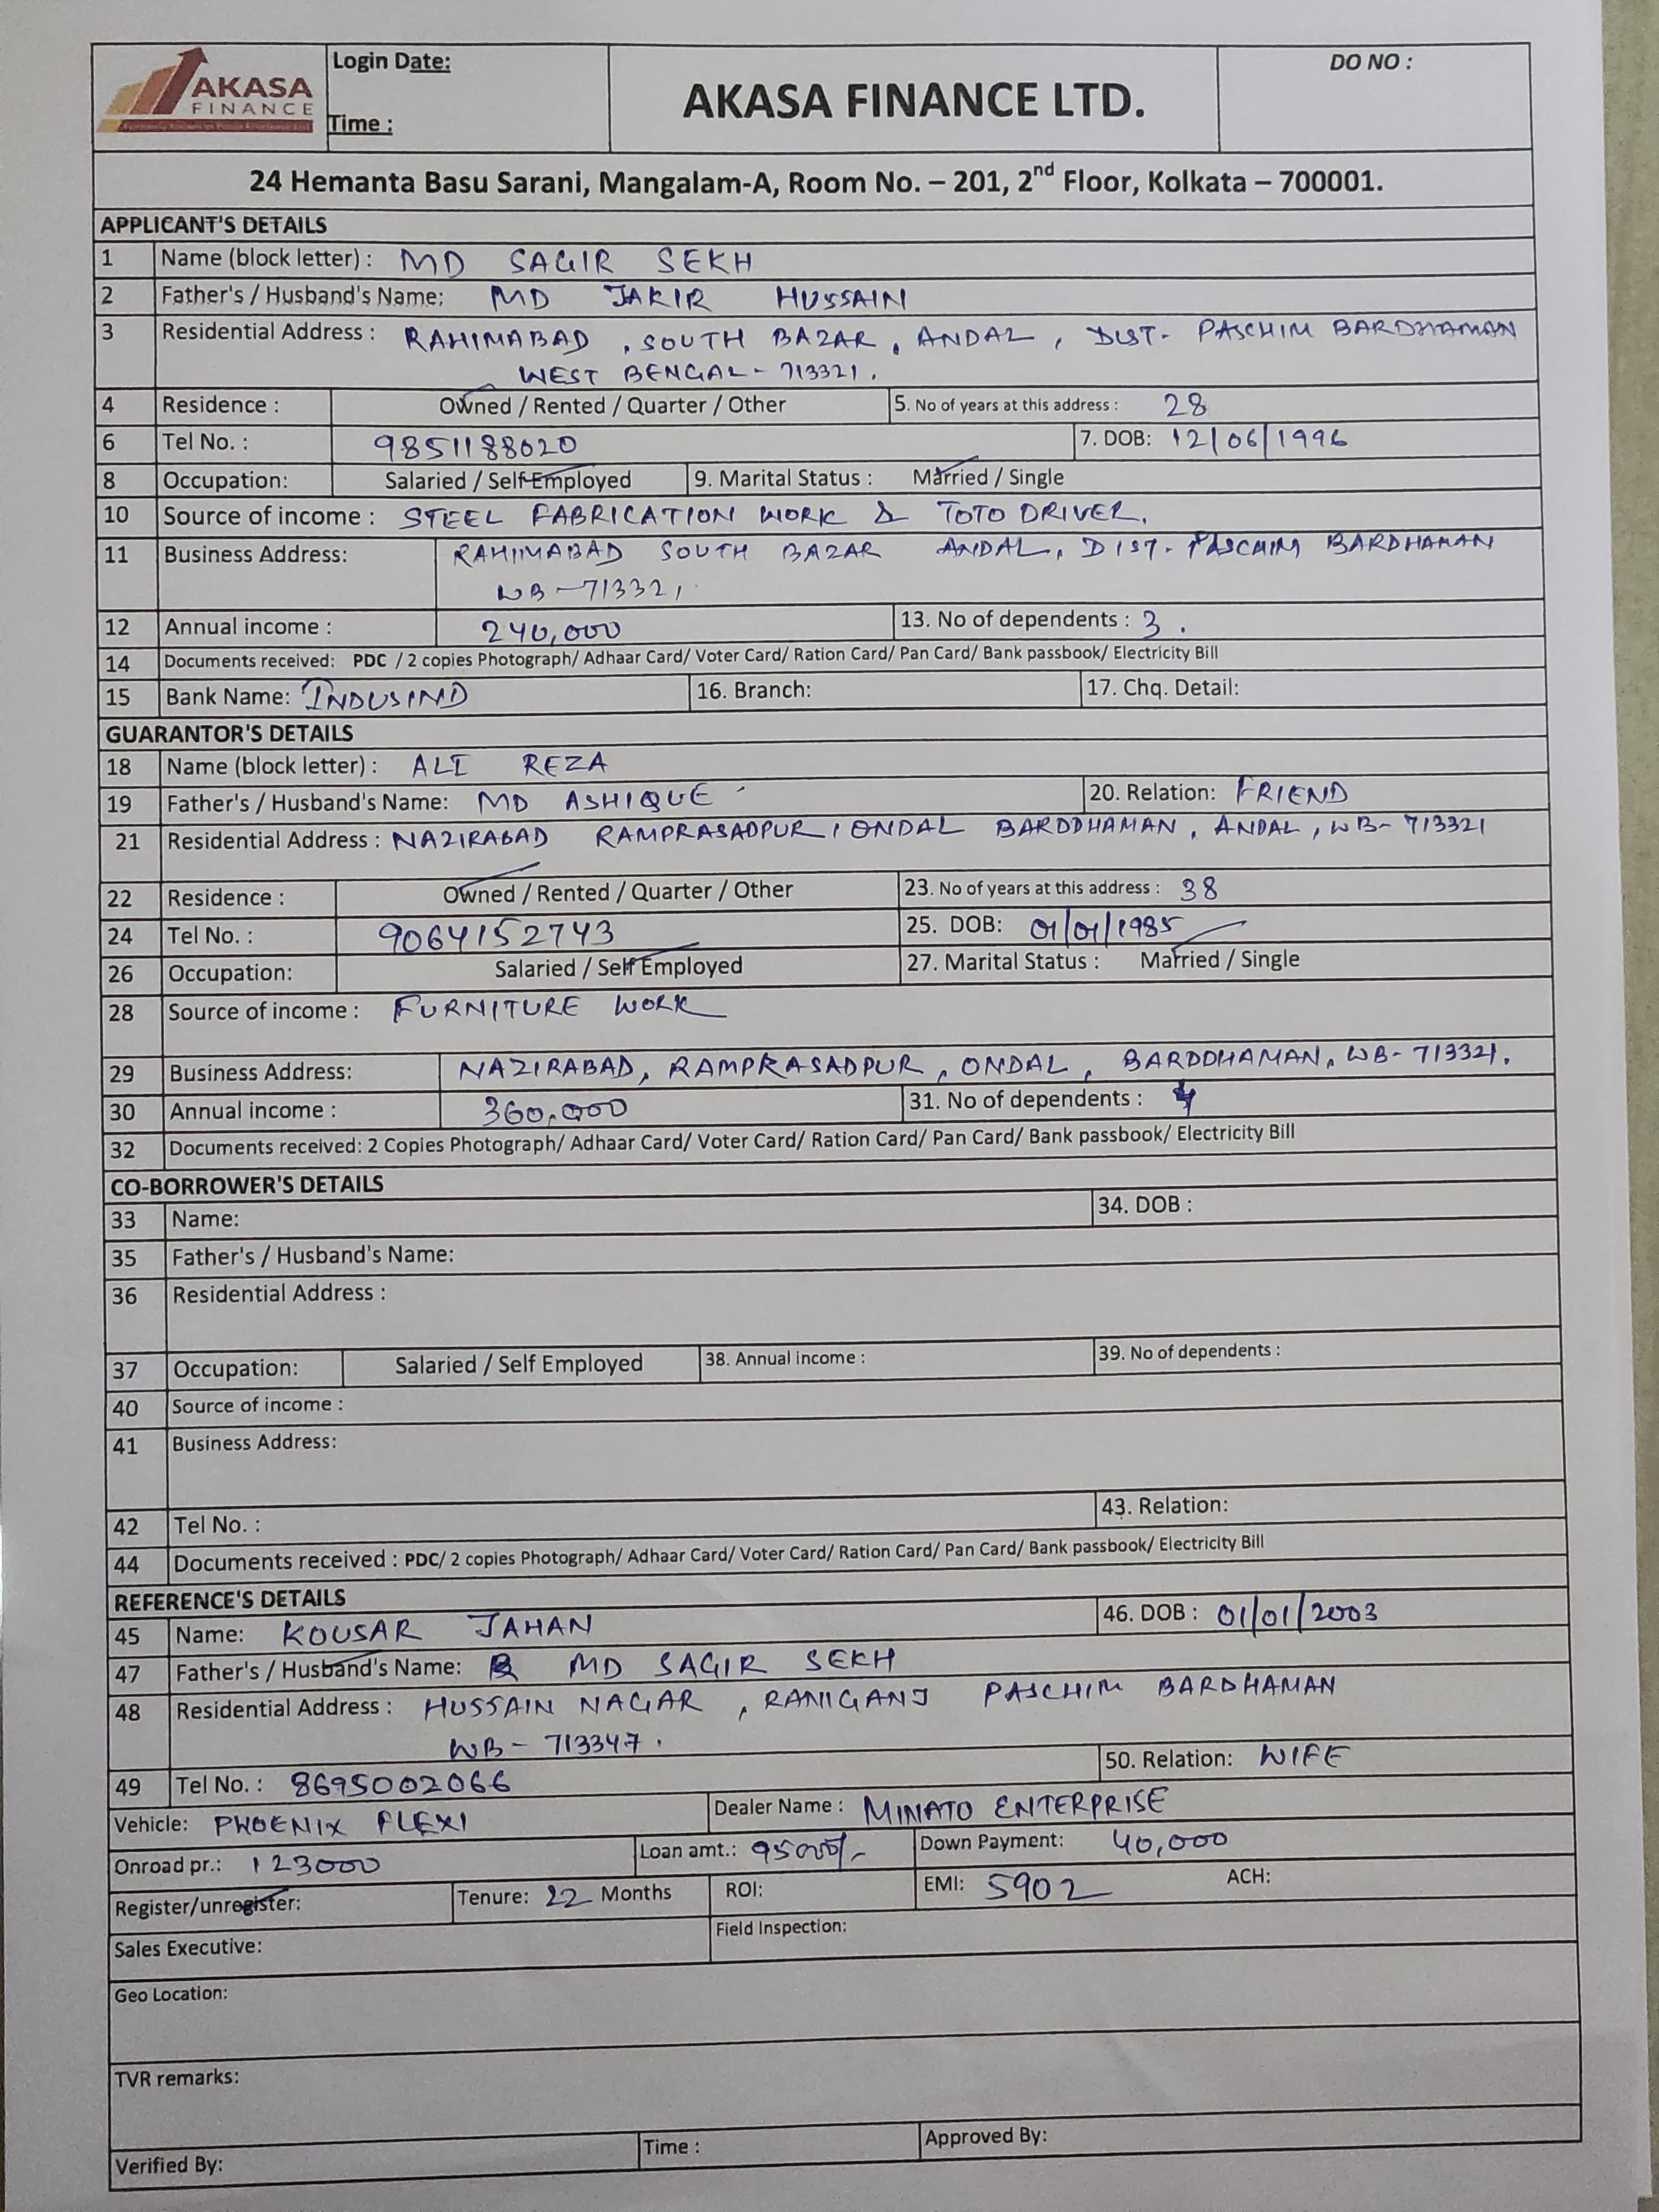 AKASA
FINANCE
Login Date:
Time :
AKASA FINANCE LTD.
DO NO :
24 Hemanta Basu Sarani, Mangalam-A, Room No. – 201, 2nd Floor, Kolkata – 700001.
APPLICANT'S DETAILS
1 Name (block letter) : MD SAGIR SEKH
2 Father's / Husband's Name: MD JAKIR HUSSAIN
3 Residential Address : RAHIMABAD , SOUTH BAZAR , ANDAL , DIST- PASCHIM BARDHAMAN
WEST BENGAL - 713321 .
4 Residence : Owned / Rented / Quarter / Other 5. No of years at this address : 28
6 Tel No. : 9851188020 7. DOB: 12/06/1996
8 Occupation: Salaried / Self Employed 9. Marital Status : Married / Single
10 Source of income : STEEL FABRICATION WORK & TOTO DRIVER.
11 Business Address: RAHIMABAD SOUTH BAZAR ANDAL, DIST- PASCHIM BARDHAMAN
WB - 713321
12 Annual income : 240,000 13. No of dependents : 3 .
14 Documents received: PDC / 2 copies Photograph/ Adhaar Card/ Voter Card/ Ration Card/ Pan Card/ Bank passbook/ Electricity Bill
15 Bank Name: INDUSIND 16. Branch: 17. Chq. Detail:
GUARANTOR'S DETAILS
18 Name (block letter) : ALI REZA
19 Father's / Husband's Name: MD ASHIQUE 20. Relation: FRIEND
21 Residential Address : NAZIRABAD RAMPRASADPUR , ONDAL BARDDHAMAN , ANDAL , WB- 713321
22 Residence : Owned / Rented / Quarter / Other 23. No of years at this address : 38
24 Tel No. : 9064152743 25. DOB: 01/01/1985
26 Occupation: Salaried / Self Employed 27. Marital Status : Married / Single
28 Source of income : FURNITURE WORK
29 Business Address: NAZIRABAD, RAMPRASADPUR , ONDAL , BARDDHAMAN, WB- 713321.
30 Annual income : 360,000 31. No of dependents : 4
32 Documents received: 2 Copies Photograph/ Adhaar Card/ Voter Card/ Ration Card/ Pan Card/ Bank passbook/ Electricity Bill
CO-BORROWER'S DETAILS
33 Name: 34. DOB :
35 Father's / Husband's Name:
36 Residential Address :
37 Occupation: Salaried / Self Employed 38. Annual income : 39. No of dependents :
40 Source of income :
41 Business Address:
42 Tel No. : 43. Relation:
44 Documents received : PDC/ 2 copies Photograph/ Adhaar Card/ Voter Card/ Ration Card/ Pan Card/ Bank passbook/ Electricity Bill
REFERENCE'S DETAILS
45 Name: KOUSAR JAHAN 46. DOB : 01/01/2003
47 Father's / Husband's Name: MD SAGIR SEKH
48 Residential Address : HUSSAIN NAGAR , RANIGANJ PASCHIM BARDHAMAN
WB - 713347 .
49 Tel No. : 8695002066 50. Relation: WIFE
Vehicle: PHOENIX FLEXI Dealer Name : MINATO ENTERPRISE
Onroad pr.: 123000 Loan amt.: 95000/- Down Payment: 40,000
Register/unregister: Tenure: 22 Months ROI: EMI: 5902 ACH:
Sales Executive: Field Inspection:
Geo Location:
TVR remarks:
Verified By: Time : Approved By: